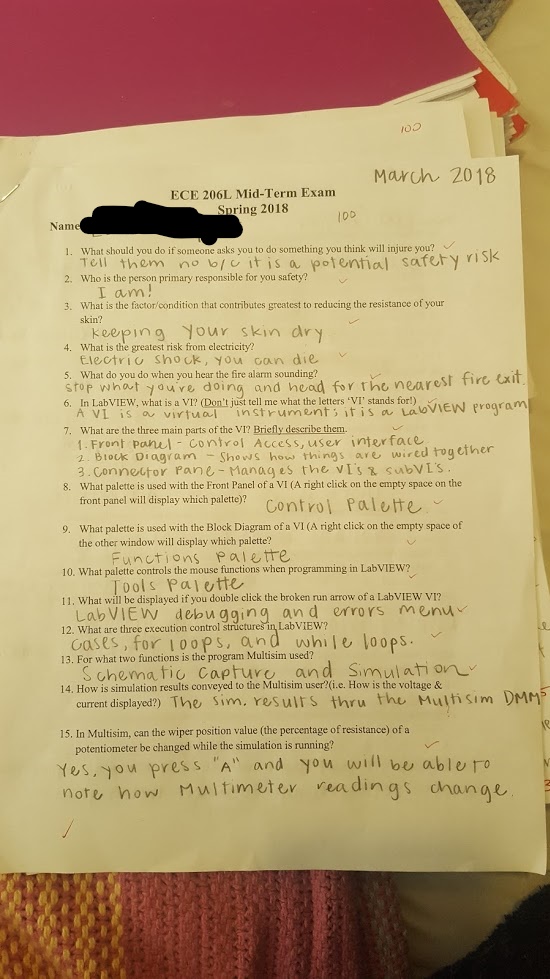 100
March 2018
ECE 206L Mid-Term Exam
Spring 2018
100
Name
1. What should you do if someone asks you to do something you think will injure you?
Tell them no b/c it is a potential safety risk
2. Who is the person primary responsible for you safety?
I am!
3. What is the factor/condition that contributes greatest to reducing the resistance of your
skin?
Keeping your skin dry
4. What is the greatest risk from electricity?
Electric shock, you can die
5. What do you do when you hear the fire alarm sounding?
Stop what you're doing and head for the nearest fire exit.
6. In LabVIEW, what is a VI? (Don't just tell me what the letters 'VI' stands for!)
A VI is a virtual instrument; it is a LabVIEW program
7. What are the three main parts of the VI? Briefly describe them.
1. Front panel - Control Access, user interface
2. Block Diagram - Shows how things are wired together
3. Connector Pane - Manages the VI's & subVI's.
8. What palette is used with the Front Panel of a VI (A right click on the empty space on the
front panel will display which palette)?
Control Palette
9. What palette is used with the Block Diagram of a VI (A right click on the empty space of
the other window will display which palette?
Functions Palette
10. What palette controls the mouse functions when programming in LabVIEW?
Tools Palette
11. What will be displayed if you double click the broken run arrow of a LabVIEW VI?
LabVIEW debugging and errors menu
12. What are three execution control structures in LabVIEW?
Cases, for loops, and while loops.
13. For what two functions is the program Multisim used?
Schematic Capture and Simulation
14. How is simulation results conveyed to the Multisim user?(i.e. How is the voltage &
current displayed?) The sim. results thru the Multisim DMMs
15. In Multisim, can the wiper position value (the percentage of resistance) of a
potentiometer be changed while the simulation is running?
Yes, you press "A" and you will be able to
note how Multimeter readings change.